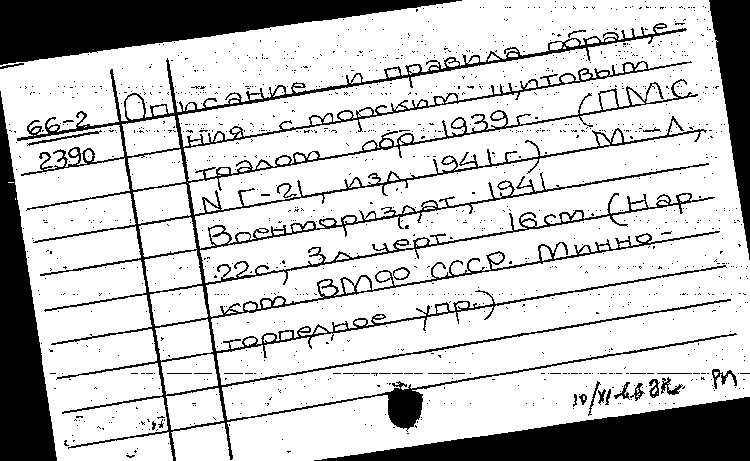 66-2
2390
Описание и правила обраще-
ния с морским щитовым
тралом обр. 1939 г. (ПМС
N Г-21, изд. 1941 г.) М.-Л.,
Военмориздат, 1941.
22 с.; 3 л. черт. 16 см. (Нар.
ком ВМФ СССР. Минно-
торпедное упр.)
10/XI-66